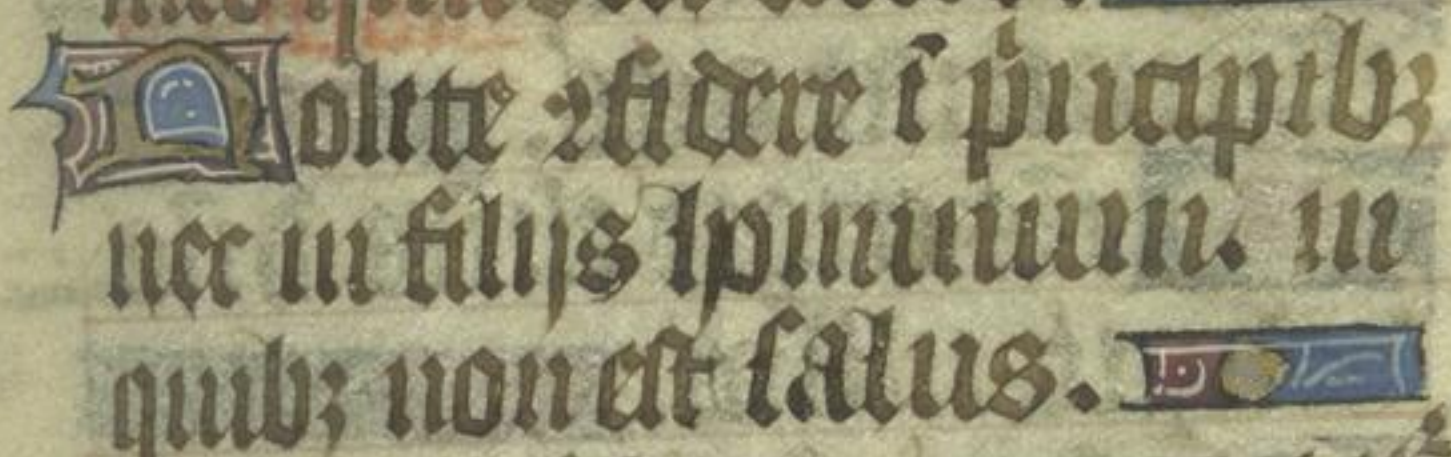 Nolite ꝯfidere ī pͥncipibꝫ
nec in filijs hominum. in
quibꝫ non est salus.